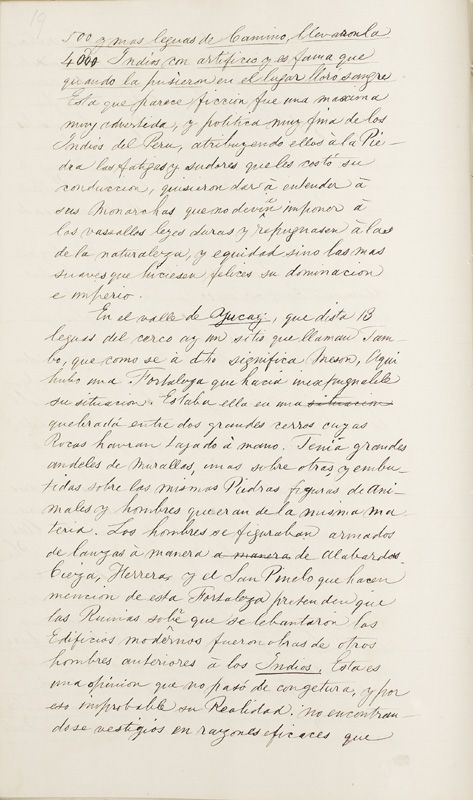 19
500 y mas leguas de Camino, llevaronla
4000 Indios con artificio y es fama que
quando la pusieron en el lugar lloro sangre
Esta que parece ficcion fue una maxima
muy advertida, y politica muy fina de los
Indios del Peru, atribuyendo ellos à la Pie-
dra las fatigas y sudores que les costó su
conduccion, quisieron dar à entender à
sus Monarchas que no devian imponer à
los vassallos leyes duras y repugnasen à las
de la naturaleza, y equidad sino las mas
suaves que hiciesen felices su dominacion
e imperio.
En el valle de Yucay, que dista 13
leguas del cerco ay un sitio que llaman Tam-
bo, que como se à dho significa Meson, Aqui
hubo una Fortaleza que hacia inexpugnable
su situacion. Estaba ella en una situacion
quebrada entre dos grandes cerros cuyas
Rocas havian tajado à mano. Tenia grandes
andeles de Murallas, unas sobre otras, y embu-
tidas sobre las mismas Piedras figuras de Ani-
males y hombres que eran de la misma ma
teria. Los hombres se figuraban armados
de lanzas à manera a manera de Alabardas
Cieza, Herrera, y el San Pinelo que hacen
mencion de esta Fortaleza pretenden que
las Ruinas sobe que se lebantaron los
Edificios modernos fueron obras de otros
hombres anteriores à los Indios. Esta es
una opinion que no pasó de congetura, y por
eso improbable su Realidad: no encontran-
dose vestigios en razones eficaces que